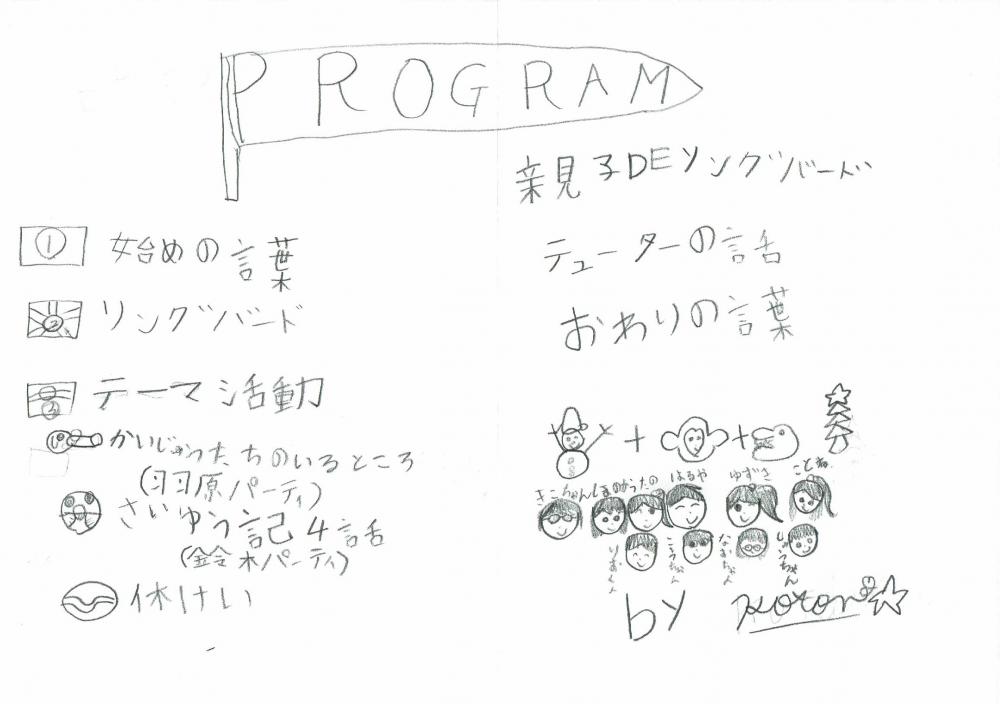 PROGRAM
① 始めの言葉
② ソングバード
③ テーマ活動
かいじゅうたちのいるところ
(羽原パーティ)
さいゆう記4話
(鈴木パーティ)
休けい
親子DEソングバード
テューターの話
おわりの言葉
+ +
きこちゃん しほ うたの はるや ゆずき ことね
りおくん こうちゃん なおちゃん しゅうちゃん
by Koton